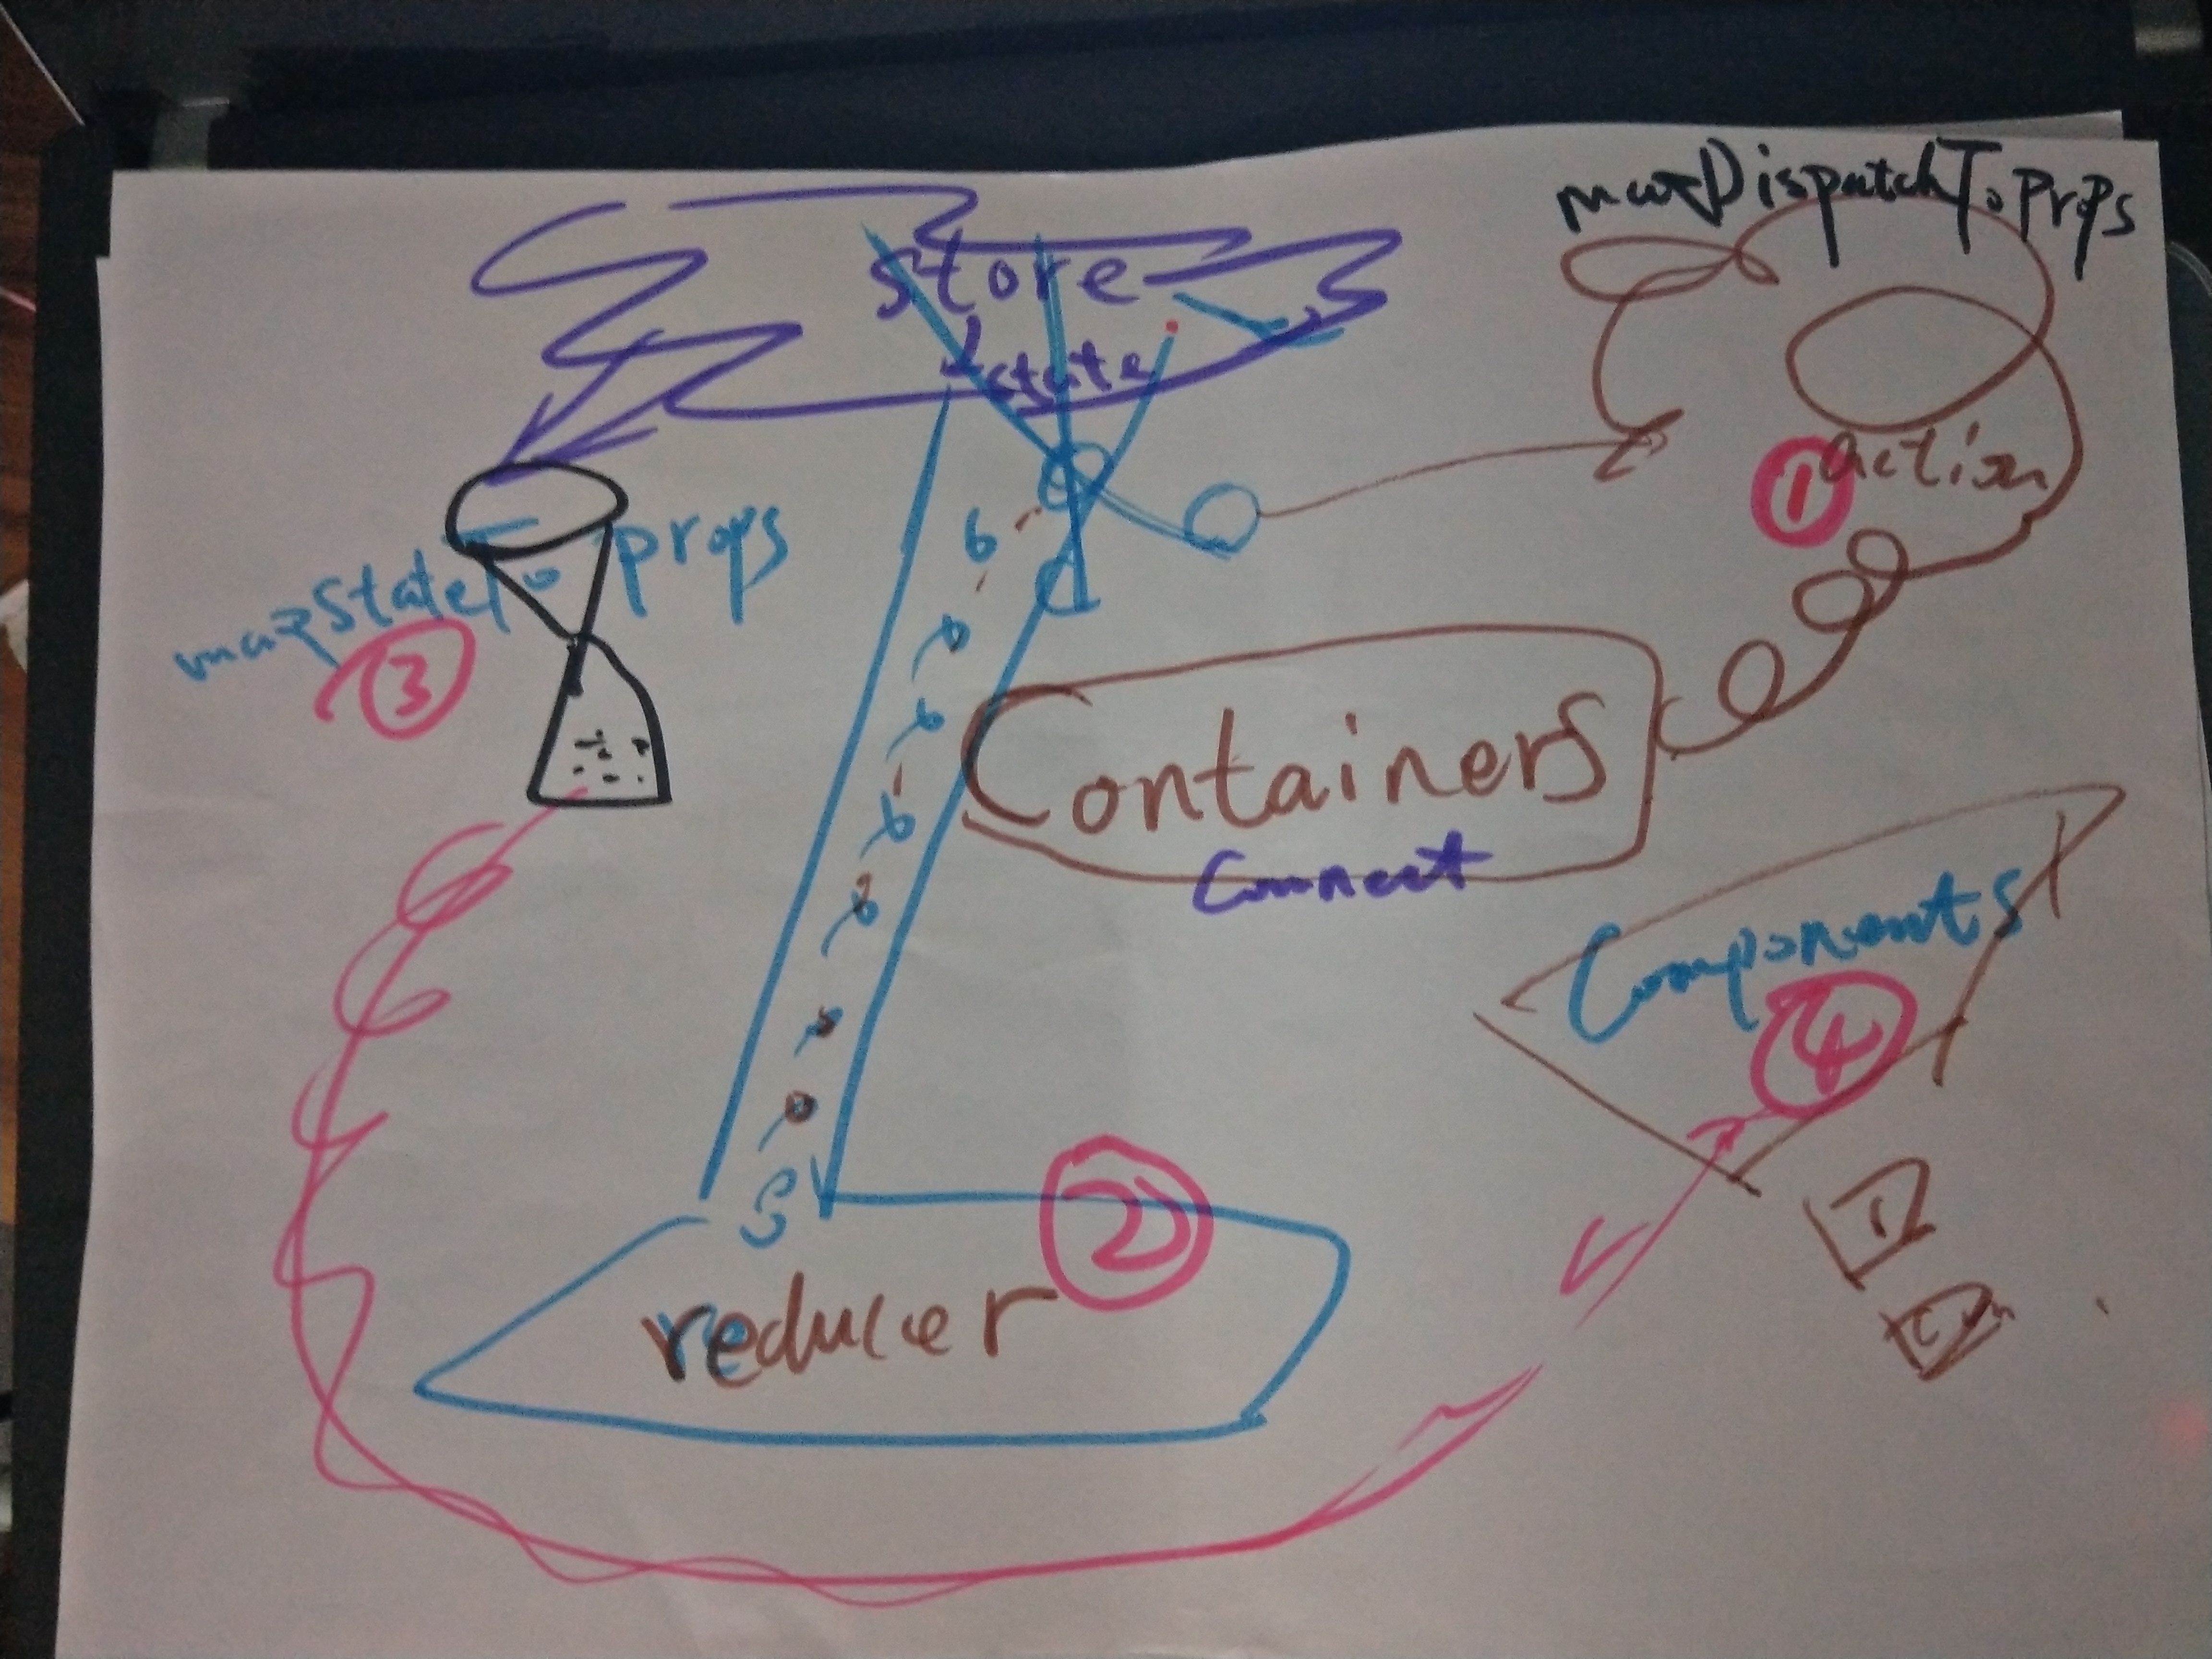 mapDispatchToProps
store
state
① action
mapStateTo props
③
Containers
Connect
Components
④
②
reducer